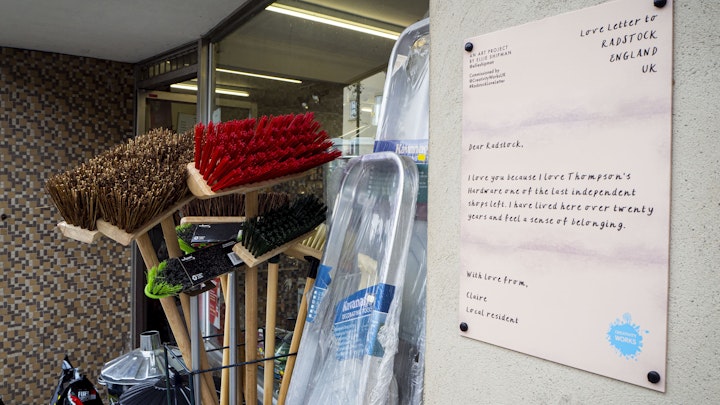 AN ART PROJECT
BY ELLIE SHIPMAN
@ellieshipman
Commissioned by
@CreativityWorksUK
#RadstockLoveLetter
Love Letter to
RADSTOCK
ENGLAND
UK
Dear Radstock,
I love you because I love Thompson's
Hardware one of the last independent
shops left. I have lived here over twenty
years and feel a sense of belonging.
With love from,
Claire
Local resident
CREATIVITY
WORKS